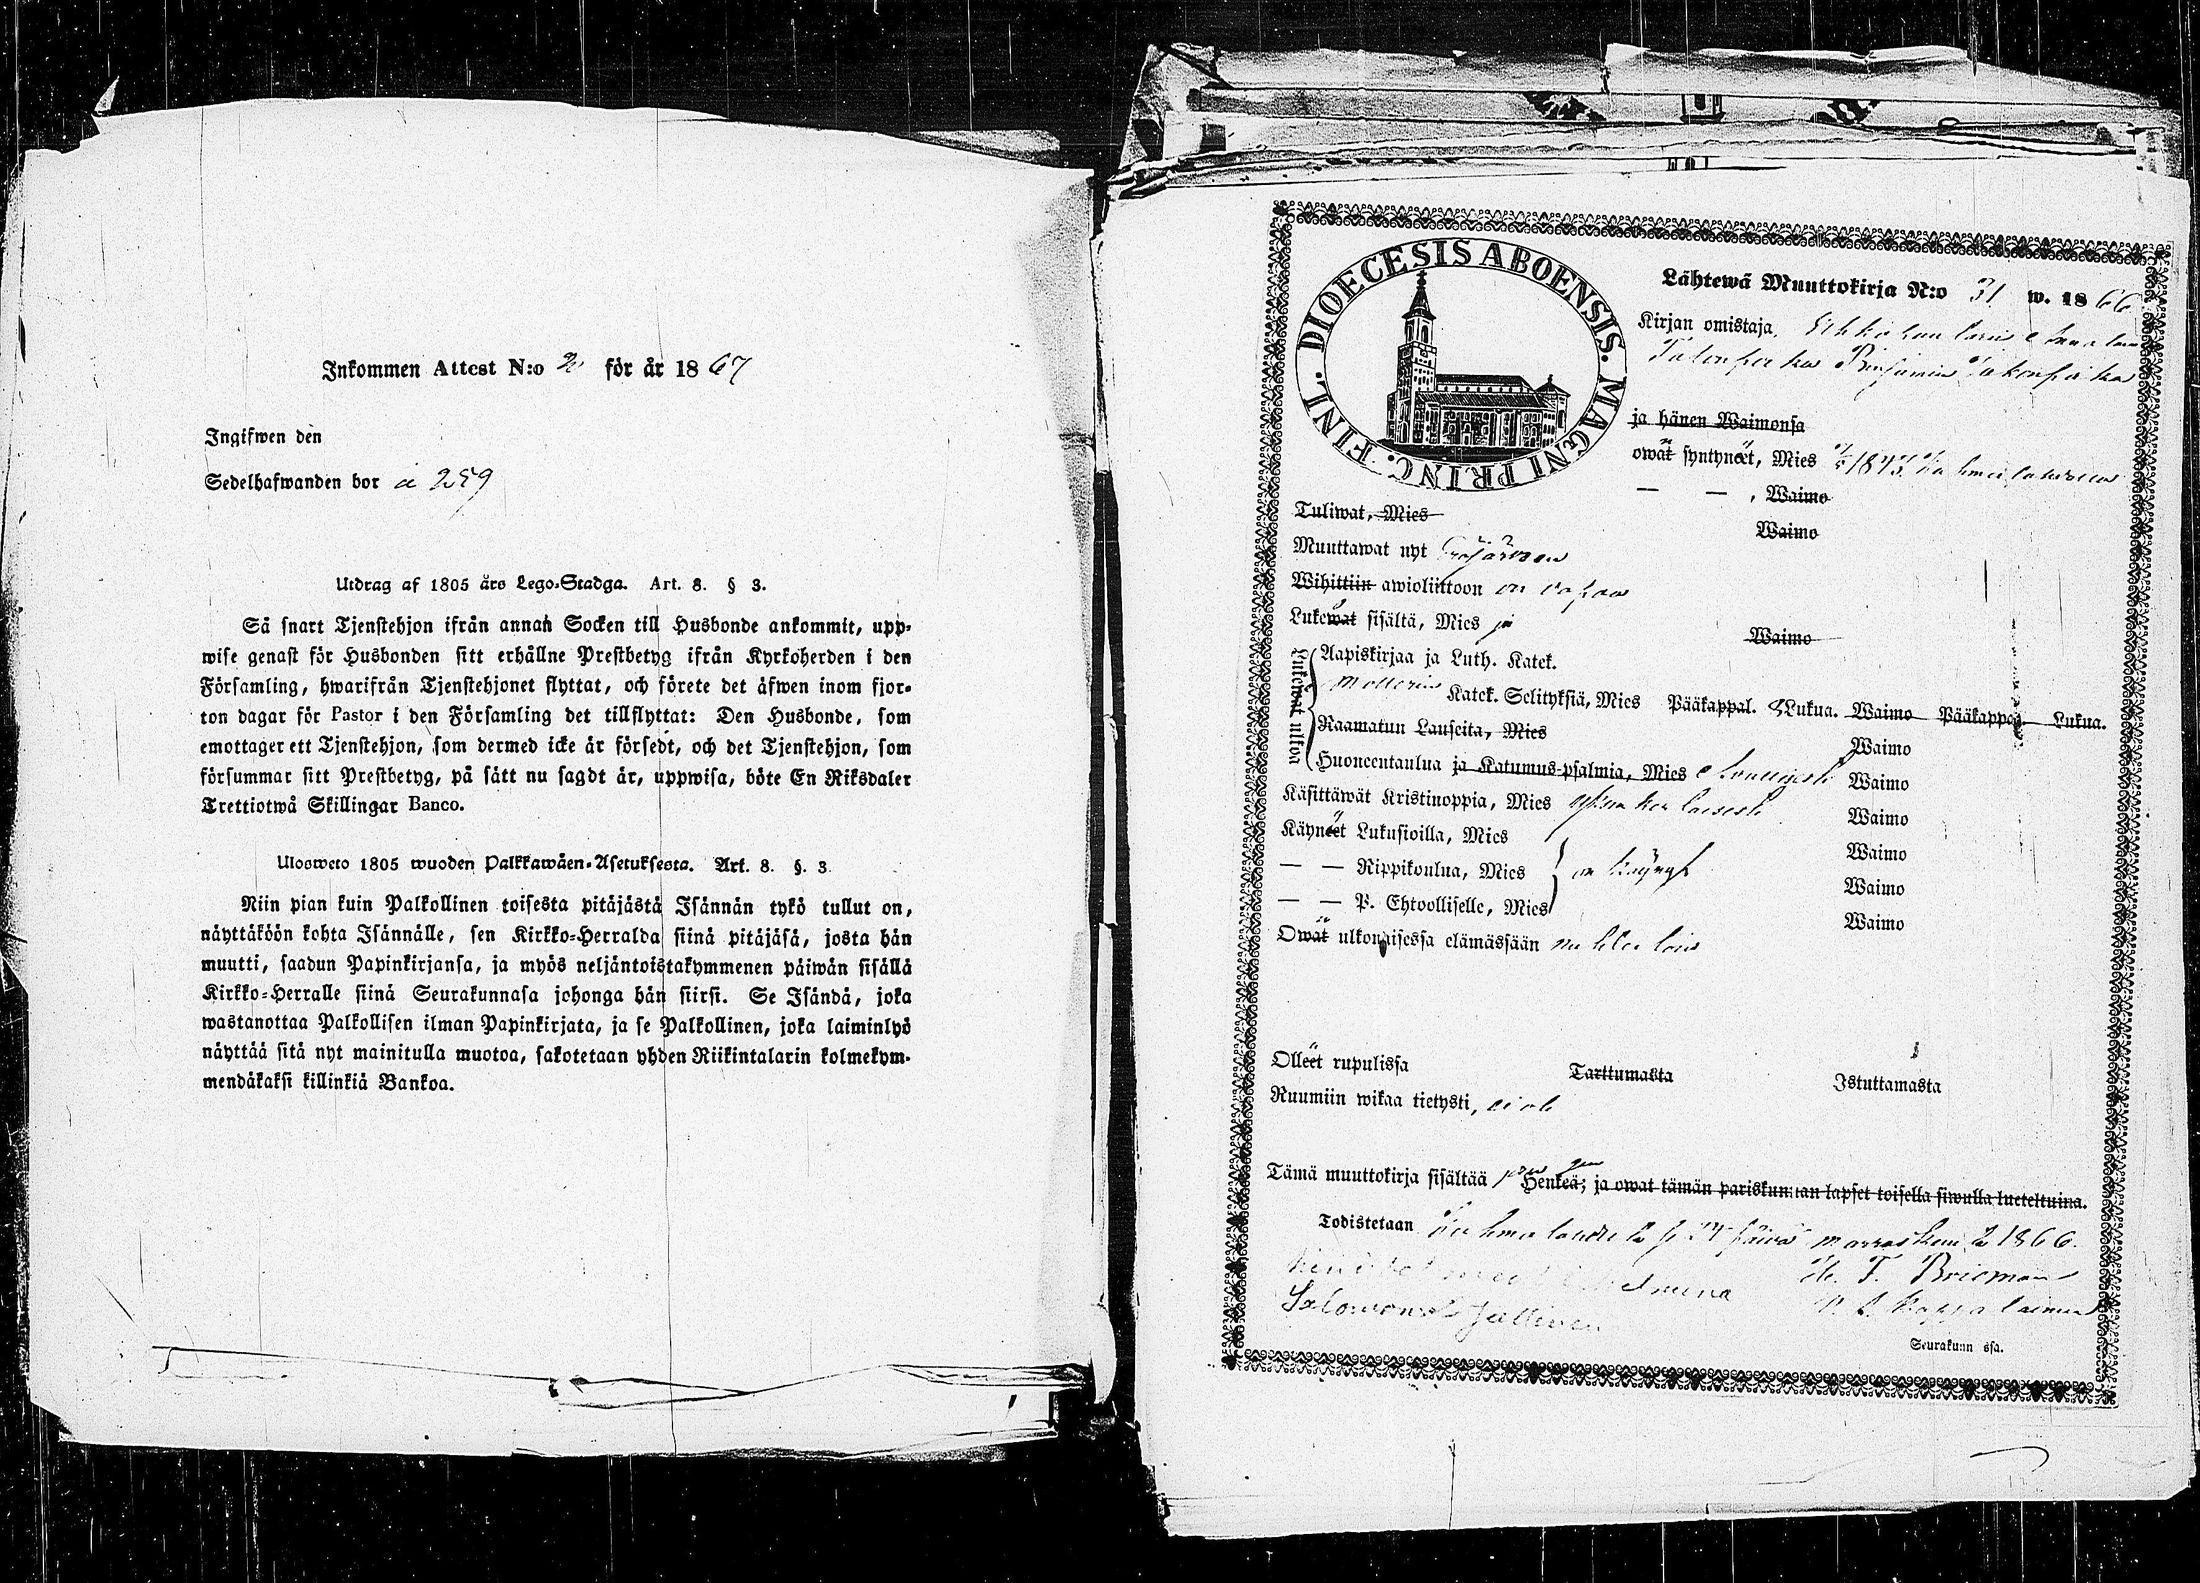 Inkommen Attest N:o 2 för år 1867
Ingifwen den
Sedelhafwanden bor å 259
Utdrag af 1805 års Lego-Stadga. Art. 8. § 3.
Så snart Tjenstehjon ifrån annan Socken till Husbonde ankommit, upp-
wise genast för Husbonden sitt erhållne Prestbetyg ifrån Kyrkoherden i den
Församling, hwarifrån Tjenstehjonet flyttat, och förete det äfwen inom fjor-
ton dagar för Pastor i den Församling det tillflyttat: Den Husbonde, som
emottager ett Tjenstehjon, som dermed icke är försedt, och det Tjenstehjon, som
försummar sitt Prestbetyg, på sätt nu sagdt är, uppwisa, böte En Riksdaler
Trettiotwå Skillingar Banco.
Ulosweto 1805 wuoden Palkkawäen-Asetuksesta. Art. 8. §. 3.
Niin pian kuin Palkollinen toisesta pitäjästä Isännän tykö tullut on,
näyttäköön kohta Isännälle, sen Kirkko-Herralda siinä pitäjäsä, josta hän
muutti, saadun Papinkirjansa, ja myös neljäntoistakymmenen päiwän sisällä
Kirkko-Herralle siinä Seurakunnasa johonga hän siirsi. Se Isändä, joka
wastanottaa Palkollisen ilman Papinkirjata, ja se Palkollinen, joka laiminlyö
näyttää sitä nyt mainitulla muotoa, sakotetaan yhden Riikintalarin kolmekym-
mendäkaksi killinkiä Bankoa.
DIOECESIS ABOENSIS. MAGNI PRINC. FINL.
Lähtewä Muuttokirja N:o 31 w. 1866
Kirjan omistaja,
Benjamin
ja hänen Waimonsa
owat syntynet, Mies 1843
— — , Waimo
Tuliwat, Mies Waimo
Muuttawat nyt
Wihittiin awioliittoon on vapaa
Lukewat sisältä, Mies ja Waimo
Lukewat ulkoa
Aapiskirjaa ja Luth. Katek.
Katek. Selityksiä, Mies Pääkappal. Lukua. Waimo Pääkappal. Lukua.
Raamatun Lauseita, Mies Waimo
Huoneentaulua ja Katumus-psalmia, Mies Waimo
Käsittäwät Kristinoppia, Mies Waimo
Käyneet Lukusioilla, Mies Waimo
— — Rippikoulua, Mies on käynyt Waimo
— — P. Ehtoolliselle, Mies Waimo
Owat ulkonaisessa elämässään
Olleet rupulissa Tarttumasta Istuttamasta
Ruumiin wikaa tietysti, ei ole
Tämä muuttokirja sisältää Henkeä; ja owat tämän pariskunnan lapset toisella siwulla lueteltuina.
Todistetaan päivä marraskuu 1866.
Salomon
Seurakunnassa.